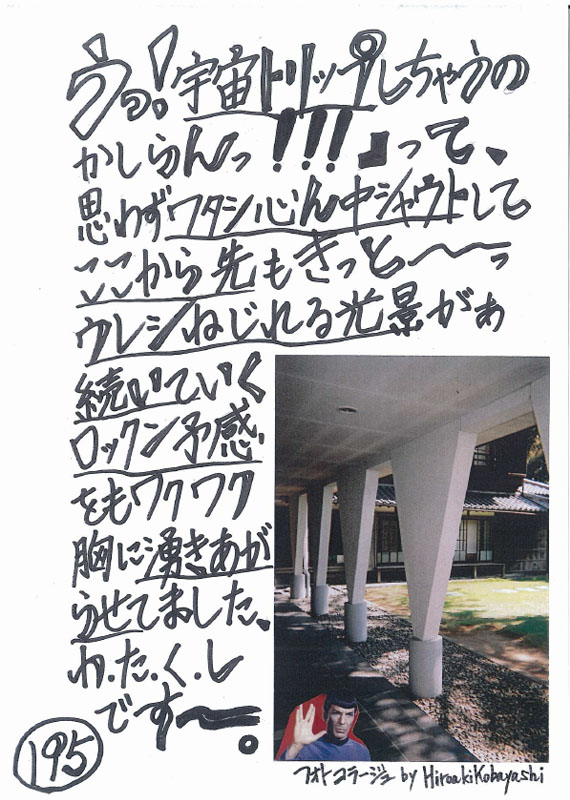 うっ!宇宙トリップしちゃうの
かしらんっ!!!』って、
思わずワタシ心ん中シャウトして
ここから先もきっと〜〜っ
ウレシねじれる光景がぁ
続いていく
ロックン予感
をもワクワク
胸に湧きあが
らせてました、
わ.た.く.し
です〜。
195
フォトコラージュ by Hiroaki Kobayashi